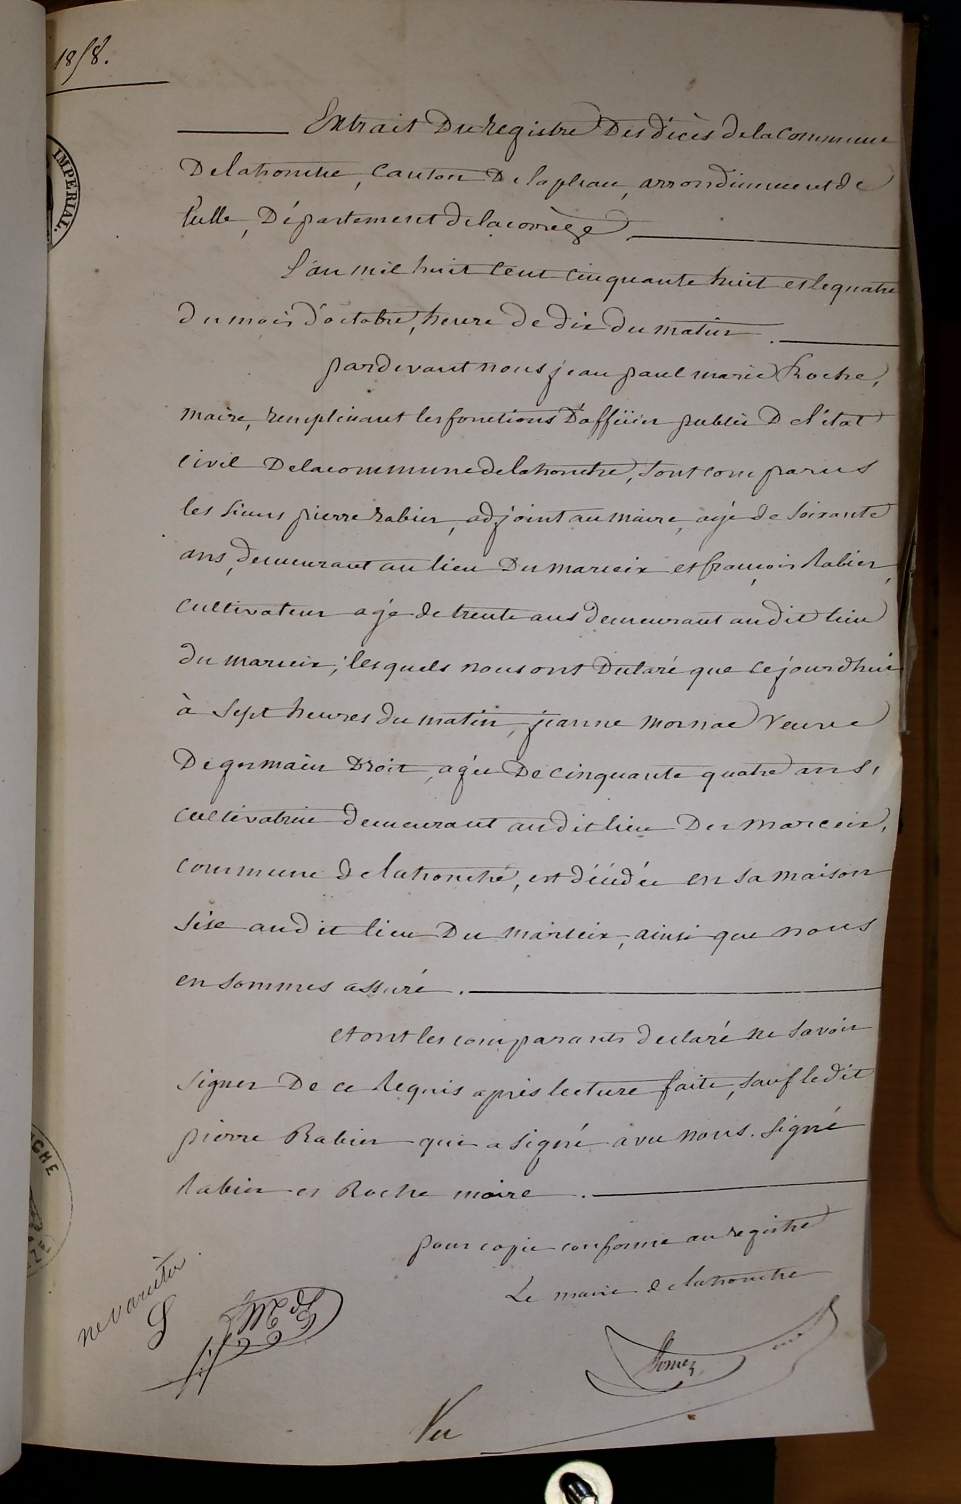 1858.
IMPÉRIAL.
Extrait Du Registre Des décès de la Commune
De latronche, Canton De lapleau, arrondissement de
tulle, Département de lacorrèze
L'an mil huit Cent Cinquante huit et le quatre
du mois d'octobre, heure de dix du matin.
pardevant nous jean paul marie Roche,
maire, remplissant les fonctions D'officier public De l'état
Civil De la commune de latronche, sont comparus
les sieurs pierre Rabier, adjoint au maire, agé de soixante
ans, demeurant au lieu Du marceix et françois Rabier,
cultivateur agé de trente ans demeurant au dit lieu
du marceix; lesquels nous ont Déclaré que cejourdhui
à sept heures du matin, jeanne mornac Veuve
De germain Droit, agée De cinquante quatre ans,
cultivatrice demeurant audit lieu Du marceix,
commune de latronche, est décédée en sa maison
sise audit lieu Du marceix, ainsi que nous
en sommes assuré.
et ont les comparants déclaré ne savoir
signer De ce Requis après lecture faite, sauf ledit
pierre Rabier qui a signé avec nous. Signé
Rabier et Roche maire.
pour copie conforme au registre
Le maire de latronche
ne varietur
Vu